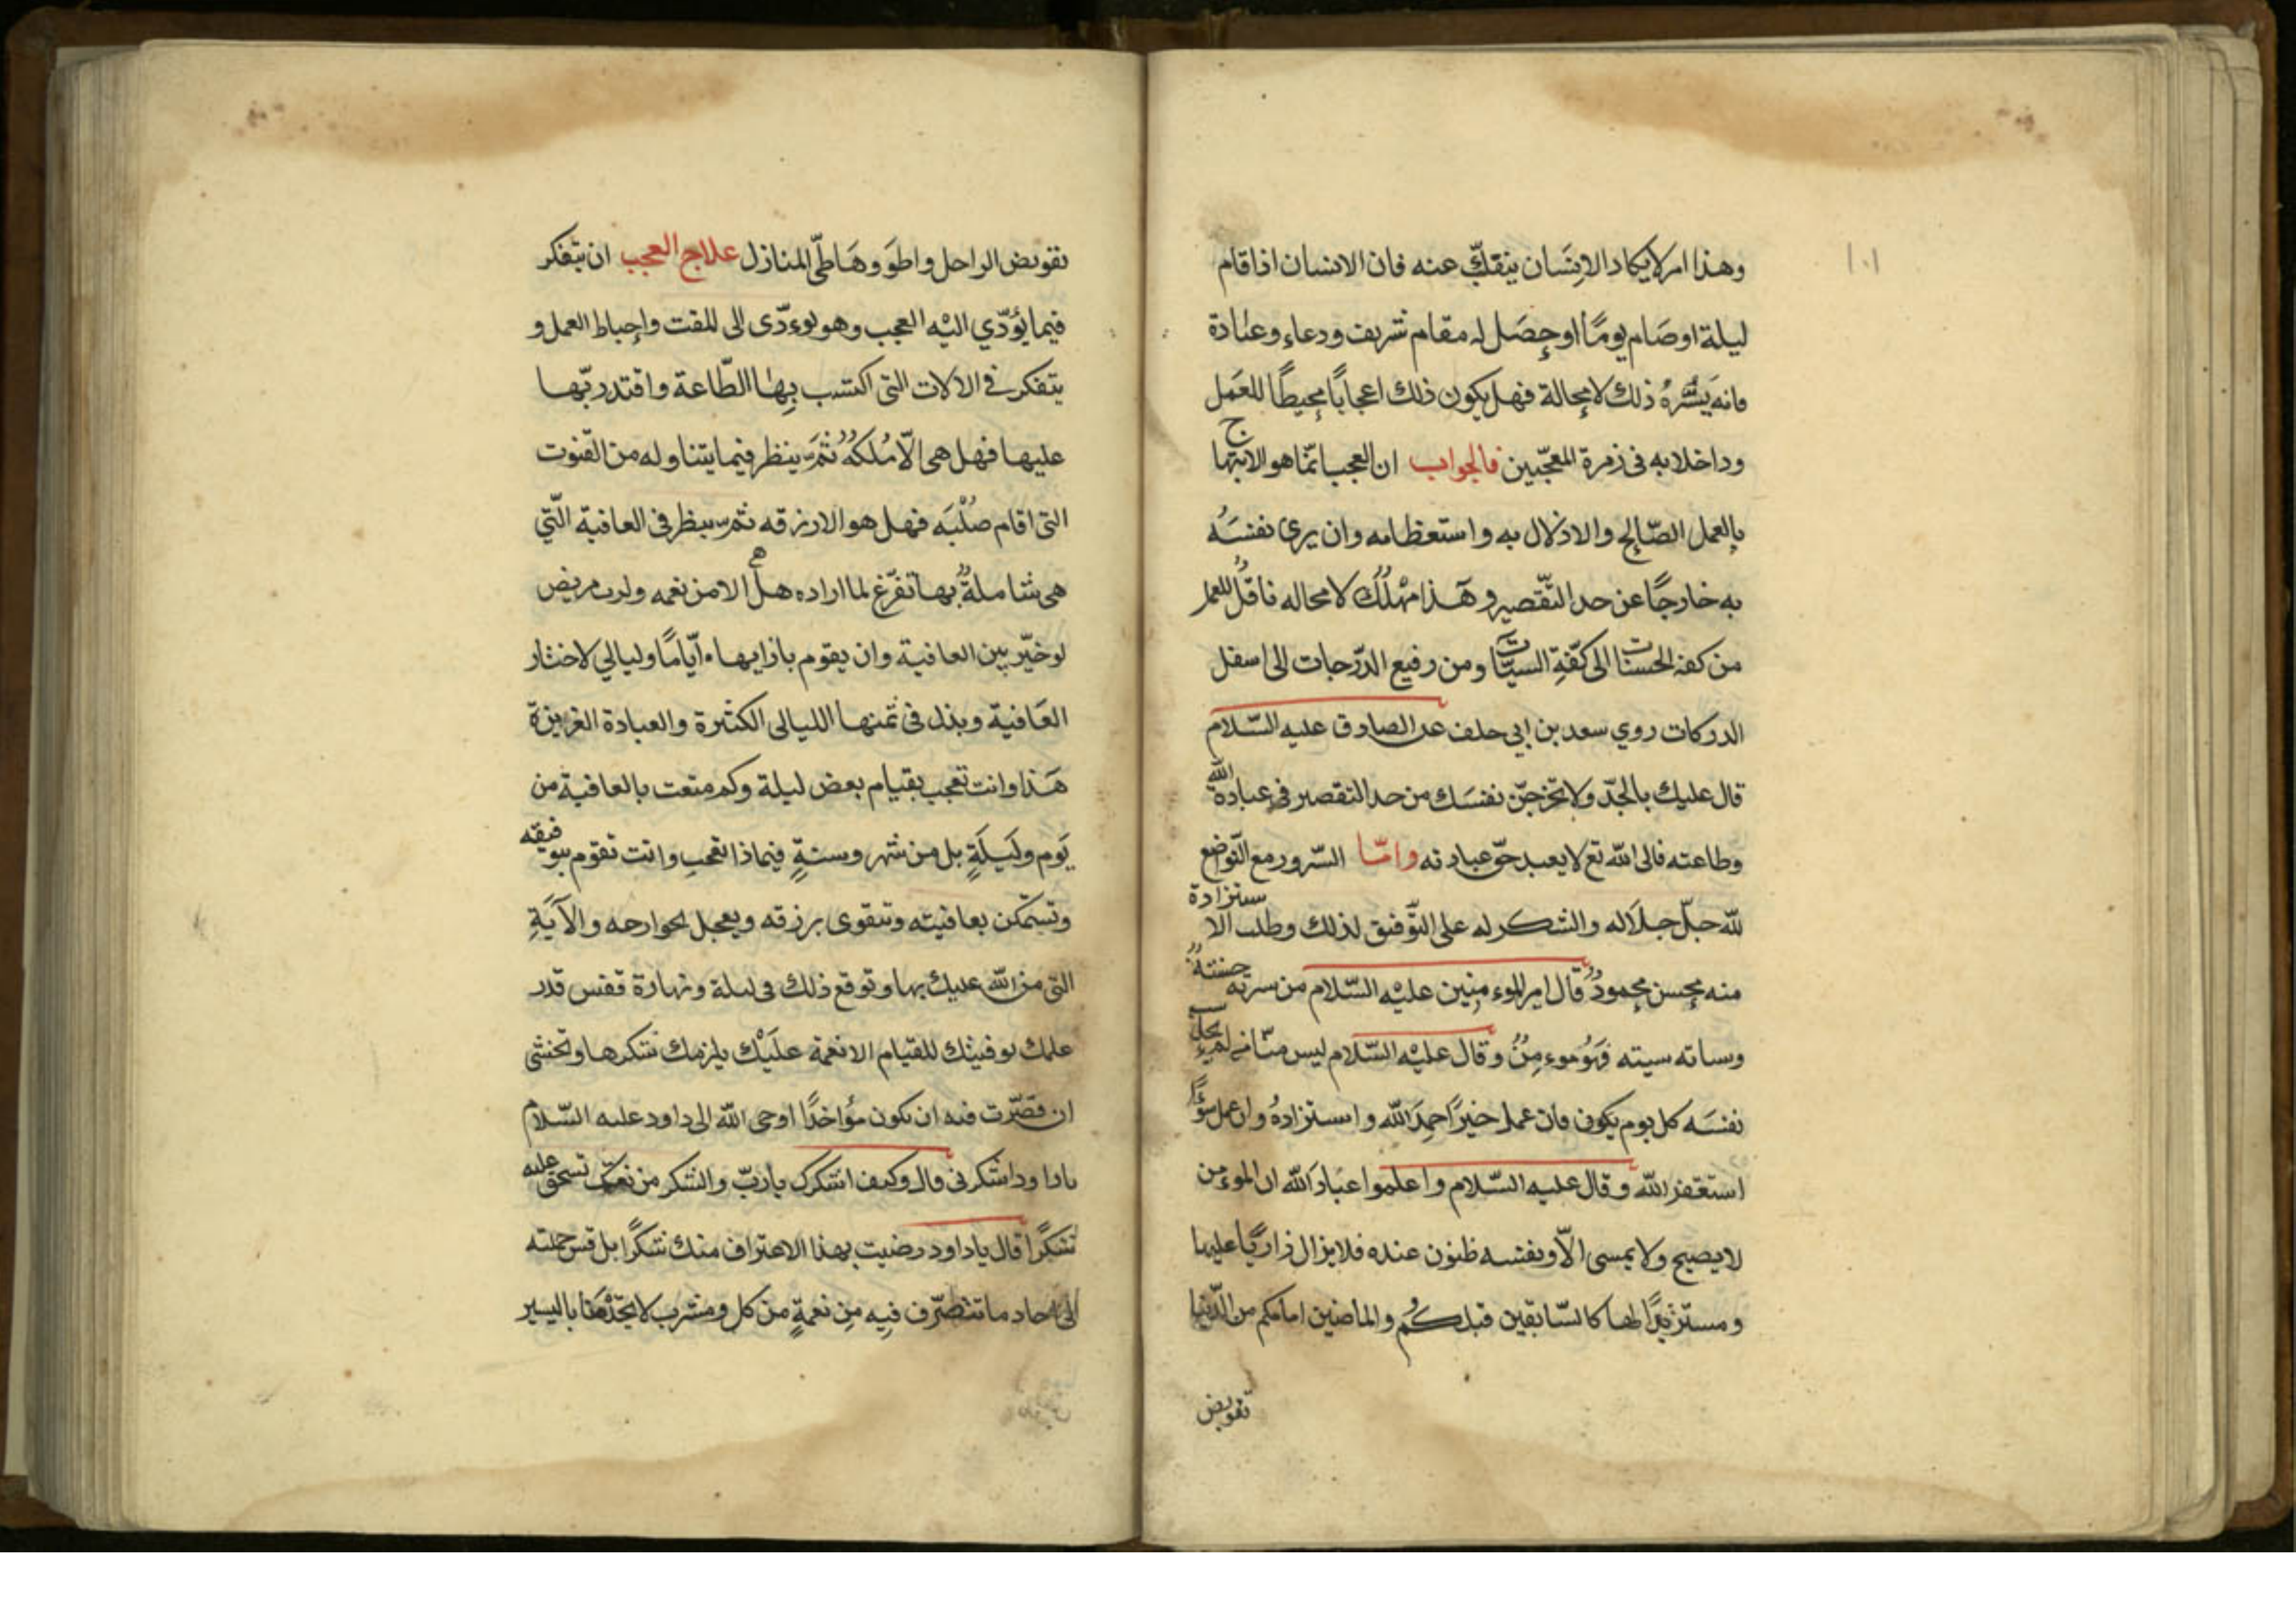 ١٠١
وهذا امر لا يكاد الانسان ينفكّ عنه فان الانسان اذا قام
ليلة او صَام يومًا او حصَل له مقام شريف ودعاء وعبادة
فانه يَسُرُّهُ ذلك لا محالة فهل يكون ذلك اعجابًا محيطًا للعَمل
وداخلا به فى زمرة المعجّبين فالجواب ان العجب انّما هو الابتهاج
بالعمل الصّالح والادلال به واستعظامه وان يرى نفسَهُ
به خارجًا عن حد التّقصير وهَذا مهْلك لا محاله ناقل للعمل
من كفة الحسنات الى كفّةِ السيّئات ومن رفيع الدّرجات الى اسفل
الدركات روي سعد بن ابي خلف عن الصادق عليه السّلام
قال عليك بالجدّ ولا تخرجنّ نفسَك من حد التقصير في عبادة الله
وطاعته فان الله تع لا يعبد حقّ عبادته وامّا السّرور مع التّواضع
لله جلّ جلَاله والشكر له على التّوفيق لذلك وطلب الاستزادة
منه فحسن محمودٌ قال امير الموءمنين عليْه السّلام من سرته حسنتهُ
وساته سيته فهُو موءمِنٌ وقال عليْه السّلام ليس منّا من لم يحاسب
نفسَه كل يوم يكون فان عمل خيرًا حمِدَ الله واستزادهُ وان عمل سوءًا
استغفر الله وقال عليه السّلام واعلموا عبادَ الله ان الموءمن
لا يصبح ولا يمسى الّا ونفسه ظنون عنده فلا يزال زاريًا عليها
ومستزيدًا لها كالسّابقين قبلكُم والماضين امامكم من الدّنيا
تقويض
تقويض الراحل واطوَوهَا طىّ المنازل علاج العجب ان يتفكر
فيما يؤدّي اليْه العجب وهو يوءدّى الى المقت واحباط العمل و
يتفكر في الالات التى اكتسب بِهٰا الطّاعة واقتدر بّها
عليها فهل هى الّا مُلكهُ ثمَّ ينظر فيما يتناوله من القّوت
التى اقام صُلْبَه فهل هو الا رزقه ثم ينظر فى العافية الّتي
هى شاملةٌ بها تفرّغ لما اراده هل هى الا من نعمه ولرب مريض
لو خيّر بين العافية وان يقوم بازايها ايّامًا وليالي لاختار
العَافية وبذل فى ثمنها الليالى الكثيرة والعبادة الغزيزة
هَذا وانت تعجب بقيام بعض ليلة وكم متعت بالعافية من
يَوم وليَلَةٍ بل من شهر وسنةٍ فبماذا تعجب وانت تقوم بتوفيقه
وتستمكن بعافيته وتتقوى برزقه ويعجل لجوارحه والآيَةِ
التى من الله عليك بها وتوقع ذلك فى ليلة ونهارة فقس قدر
علمك توفيتك للقيام الا نعمة علَيْك يلزمك شكرها وتخشى
ان قصّرت فيه ان تكون مؤاخذًا اوحى الله الى داود عليه السّلام
يا داود اشكرنى قال وكيف اشكرك ياربّ والشكر من نعمتك تستحق عليه
شكرًا قال يا داود رضيت بهذا الاعتراف منك شكرًا بل قس جملته
الى احاد ما تتصرّف فيه مِن نعمةٍ من كل ومشرب لا تجدْهَنا باليسير